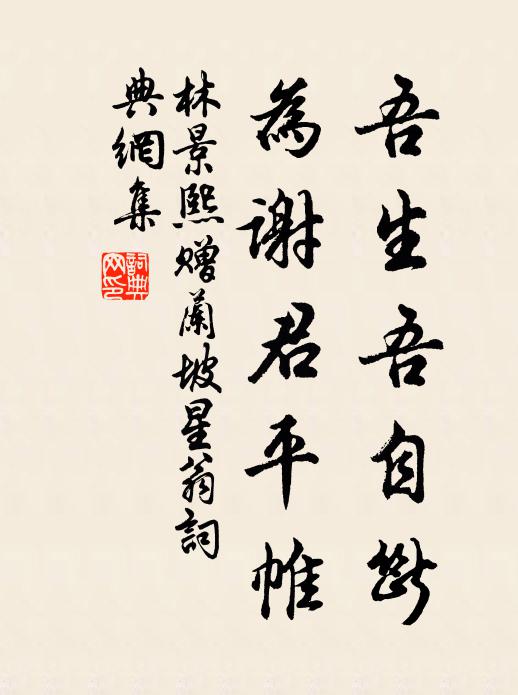 吾生吾自斷
為謝君平帷
林景熙贈蘭坡星翁詞
典網集
詞典
网印